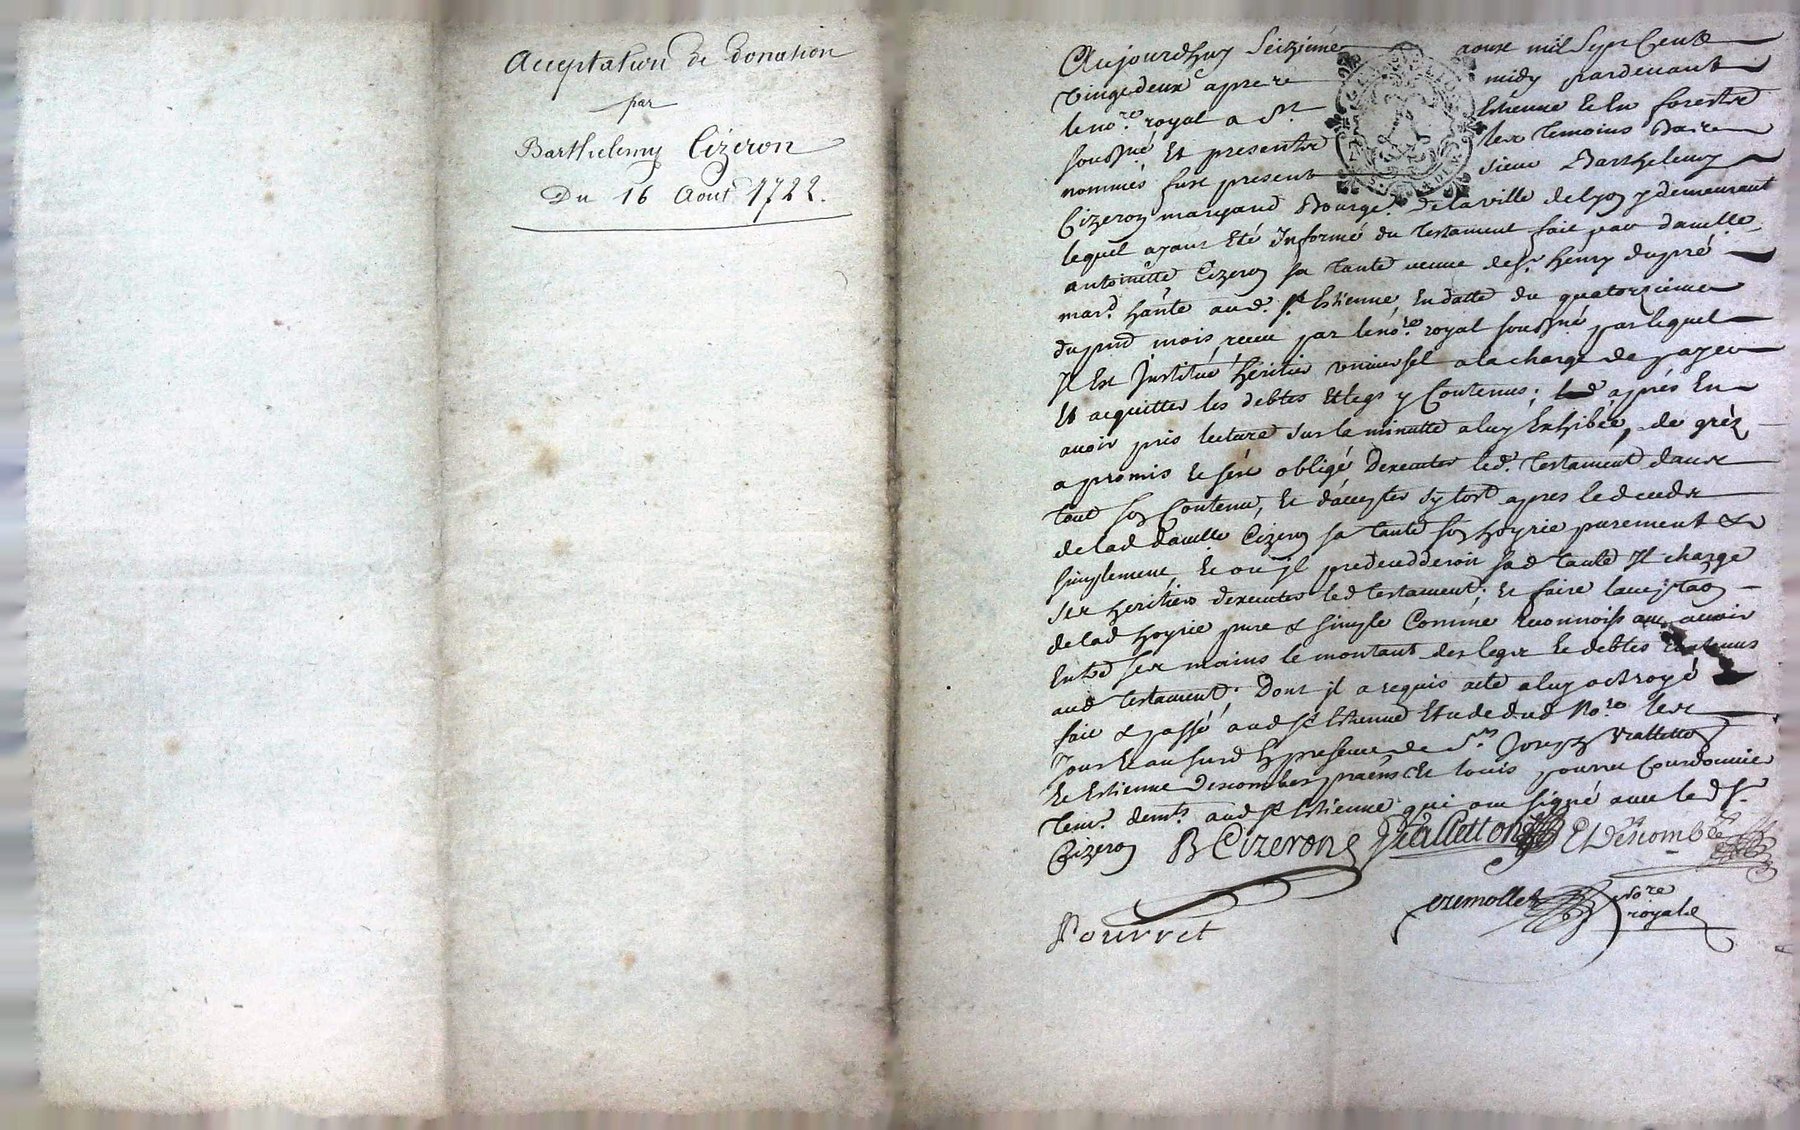 Acceptation de Donation
par
Barthelemy Cizeron
Du 16 Aout 1722.
Aujourdhuy Seizieme aoust mil Sept Cent
vingt deux apres midy pardevant
le no.re royal a St Estienne en forestz
sousné et presents les temoins bas
nommés fust present sieur Barthelemy
Cizeron marchand Bourge. de la ville de lyon y demeurant
lequel ayant été informé du testament fait par damelle
antoinette Cizeron sa tante veuve de Sr henry dupré
mard. hante aud. St Estienne en datte du quatorzieme
du pnt mois receu par le no.re royal sousné par lequel
Il est Institué heritier universel a la charge de payer
et acquitter les debtes et legs y Contenus; apres en
avoir pris lecture sur la minutte a luy Exhibée, de gréz
a promis et s'est obligé d'executer led. testament dans
tout son Contenu, et d'accepter sytost apres le deceds
de lad damelle Cizeron sa tante son hoyrie purement &
simplement, et ou jl predecedderoit sad tante Il charge
ses heritiers d'executer led testament; et faire lacceptaon
de lad hoyrie pure & simple Comme reconnoiss avoir
Entre ses mains le montant des legs et debtes Contenus
aud testament; Dont jl a requis acte a luy octroyé
fait & passé aud St Estienne Etude dud No.re les
Jour et an susd En presence de Srs Joseph Viallettoz
et Estienne Descombes praens et Louis pourret Courdonnier
tem. demts. aud St Estienne qui ont signé avec led Sr
Cizeron B Cizeron Viallettoz Et Descombes
Pourret
cremollet No.re
royal